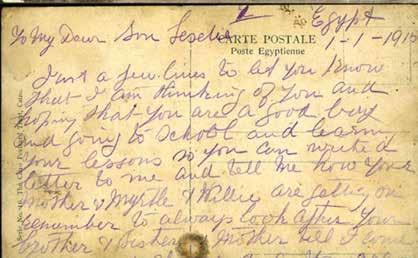 Egypt
To My Dear Son Leslie
CARTE POSTALE
Poste Egyptienne
1-1-1915
Just a few lines to let you know
that I am thinking of you and
hoping that you are a good boy
and going to School and learn
your lessons so you can write
letter to me and tell me how your
Mother & Myrtle & Willie are getting on
remember to always look after your
Brother & Sister & Mother till I come